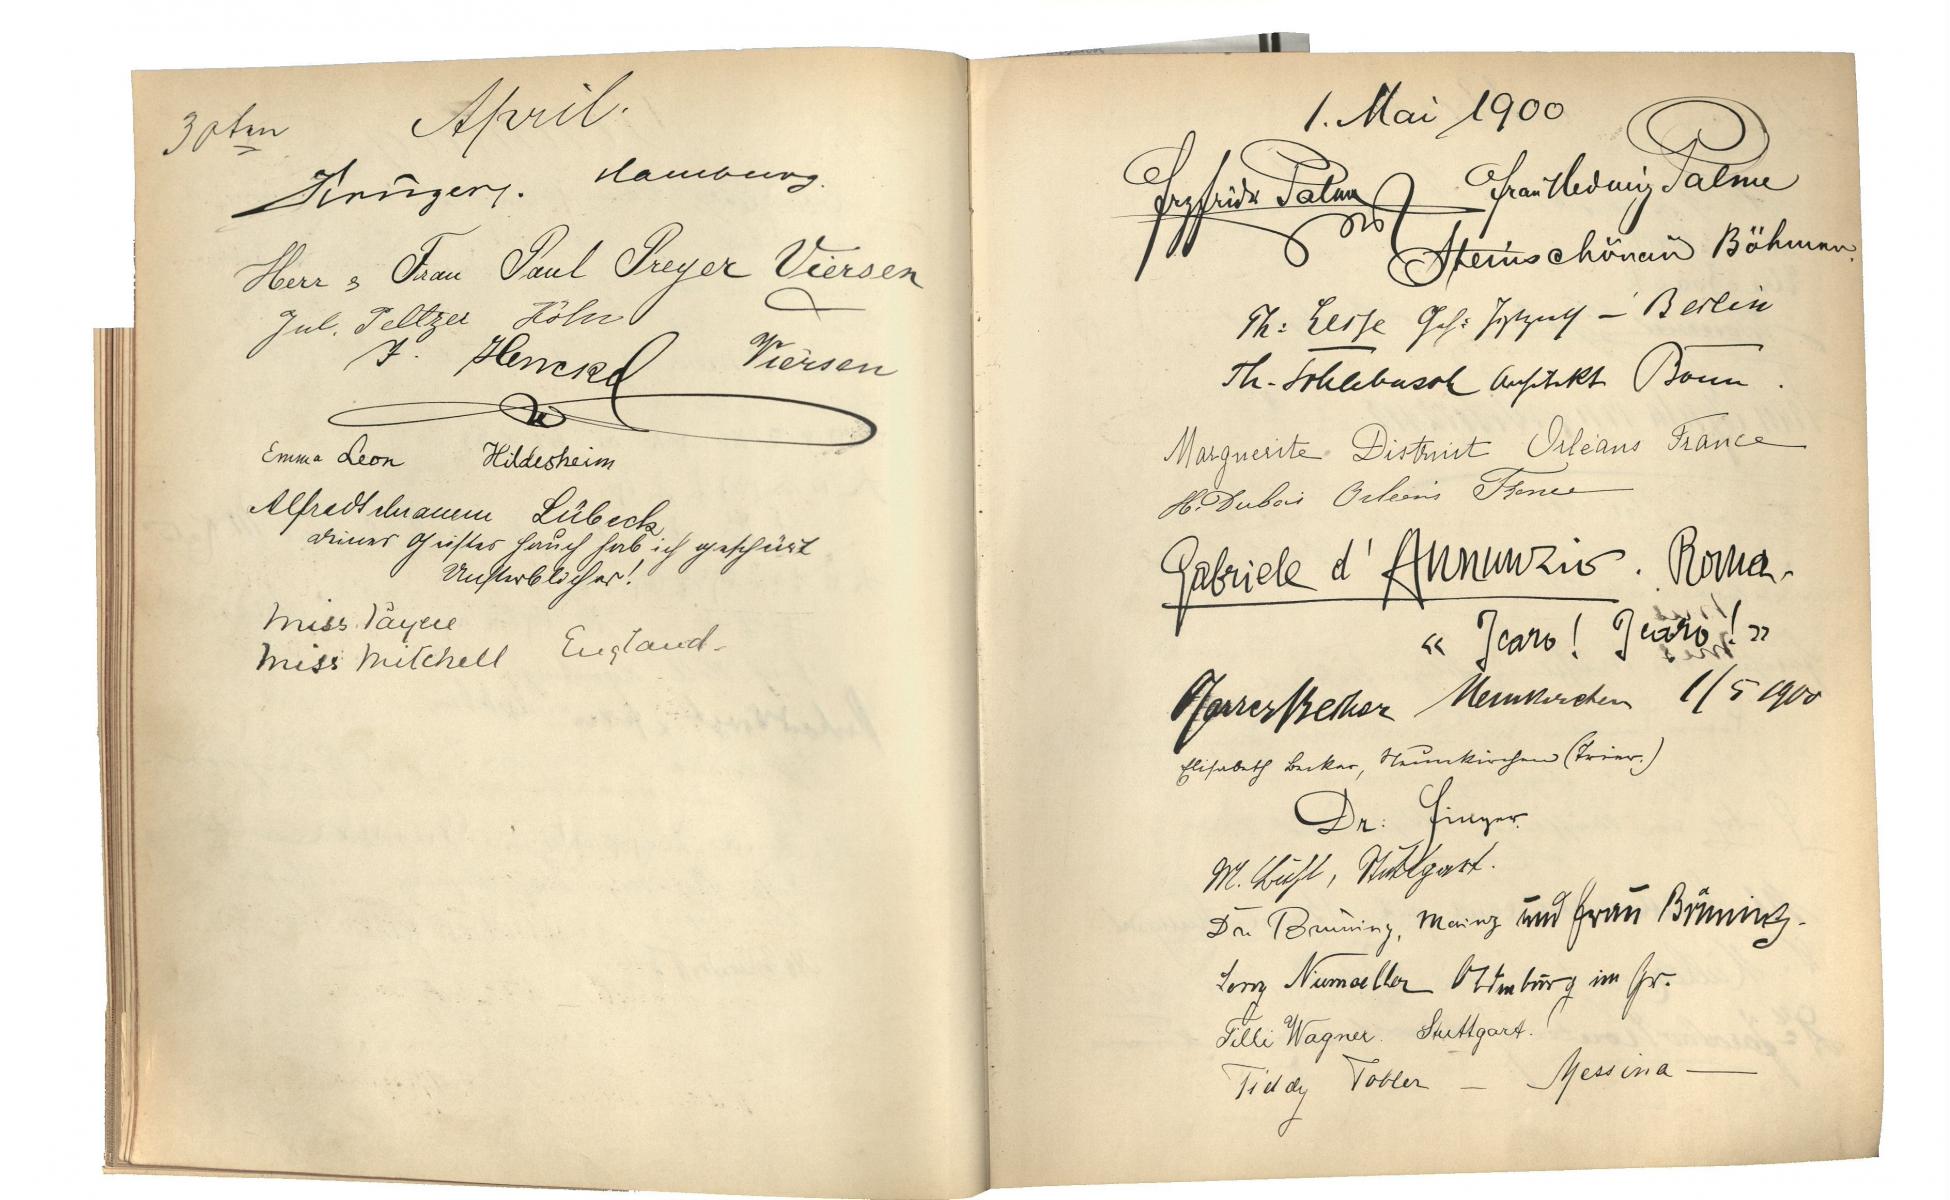 30ten April.
Krüger. Hamburg.
Herr & Frau Paul Preyer Viersen
Jul. Peltzer Köln
F. Henckel Viersen
Emma Leon Hildesheim
Alfred Schramm Lübeck
deines Geistes Hauch hab ich gespürt
Unsterblicher!
Miss Payne
Miss Mitchell England
1. Mai 1900
Palme Frau Hedwig Palme
Steinschönau Böhmen.
Th: Lesse Geh: Justizrath – Berlin
Th. Architekt Bonn.
Marguerite Orléans France
H. Dubois Orléans France
Gabriele d'Annunzio. Roma.
« Icaro! Icaro! »
Pfarrer Becker Neunkirchen 1/5 1900
Elisabeth Becker, Neunkirchen (Trier.)
Dr:
M. Stuttgart.
Dr. Brüning, Mainz und Frau Brüning.
Niemoeller Oldenburg im Gr.
Tilli Wagner. Stuttgart.
Tiddy Tobler – Messina –